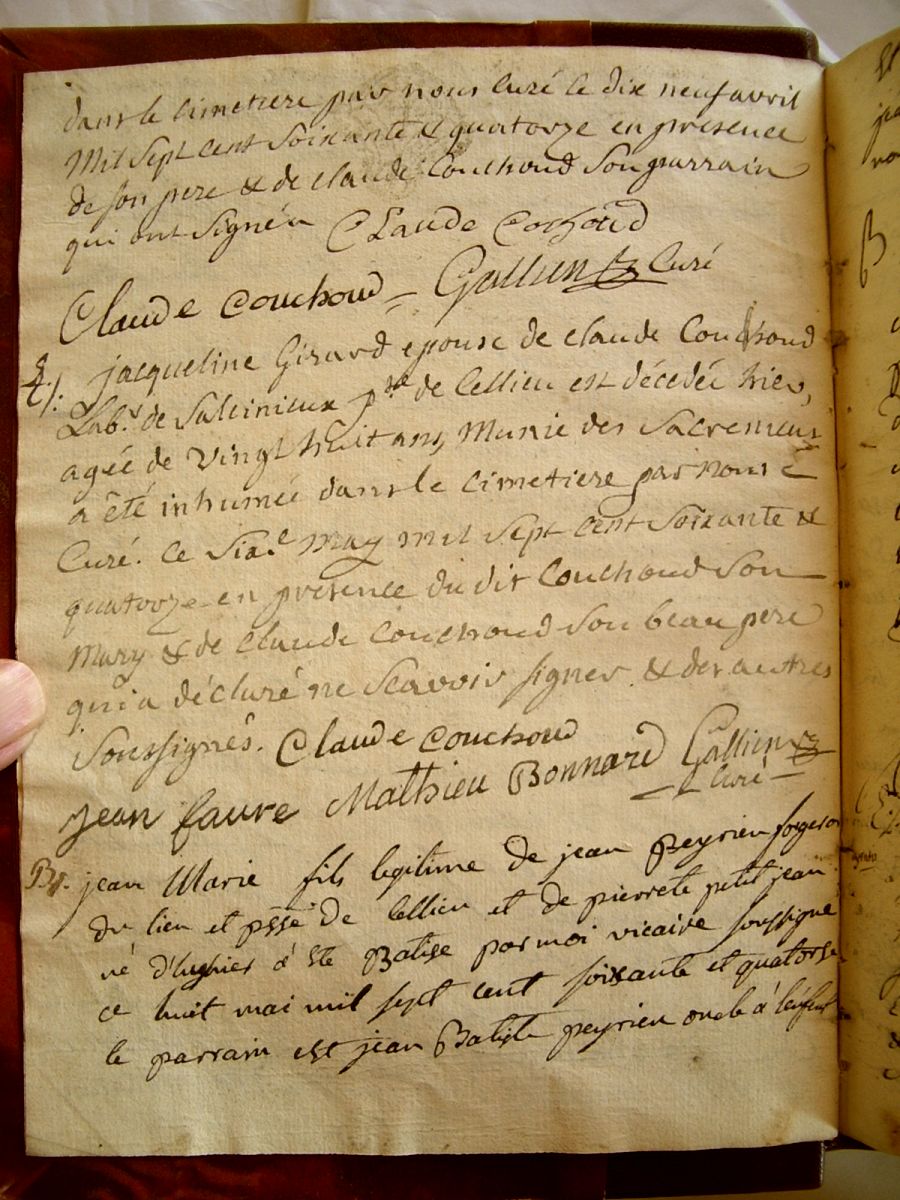 dans le cimetiere par nous curé le dix neuf avril
Mil Sept cent Soixante & quatorze en presence
de son pere & de claude Couchoud Son parrain
qui ont Signés Claude Cochoud
Claude Couchoud Gallien Curé
jacqueline Girard epouse de claude Couchoud
Labr. de Salcinieux psse de Cellieu est décedée hier,
agée de Vingt huit ans, Munie des Sacremens
a été inhumée dans le cimetiere par nous
Curé. Ce Sixe May Mil Sept cent Soixante &
quatorze en presence du dit Couchoud Son
Mary & de claude Couchoud Son beau pere
qui a déclaré ne Scavoir signer & des autres
Soussignés. Claude Couchoud Gallien
jean faure Mathieu Bonnard Curé
Bt. jean Marie fils legitime de jean peyrieu forgeron
du lieu et psse de Cellieu et de pierrete petit jean
né d'hyhier à été Batise par moi vicaire soussigné
ce huit mai mil sept cent soixante et quatorse
le parrain est jean Batiste peyrieu oncle à l'enfent